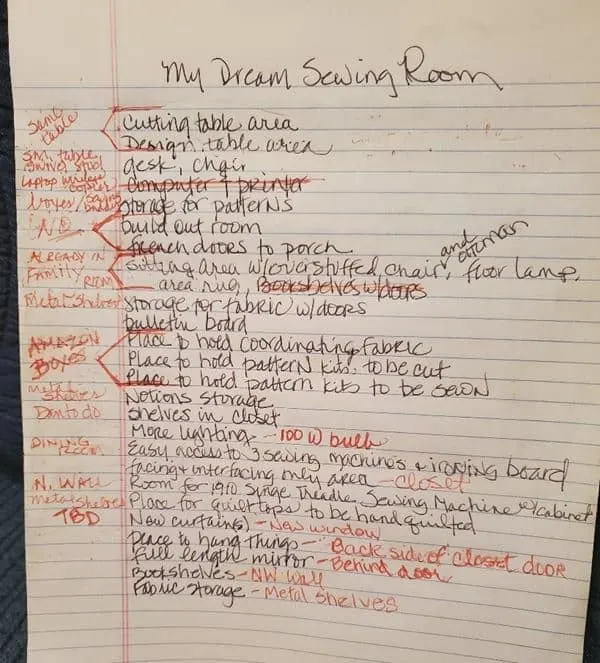 My Dream Sewing Room
Same table
Cutting table area
Design table area
Sm. table, swivel stool
desk, chair
Laptop wireless copier
Computer + printer
boxes/
Storage for patterns
NO
build out room
French doors to porch
ALREADY IN FAMILY ROOM
Sitting area w/overstuffed chair, and ottoman floor lamp,
area rug, Bookshelves w/doors
Metal Shelves
Storage for fabric w/doors
bulletin board
AMAZON BOXES
Place to hold coordinating fabric
Place to hold pattern kits to be cut
Place to hold pattern kits to be sewn
Metal Shelves
Notions storage
Dan to do
Shelves in closet
More lighting - 100 W bulb
DINING ROOM
Easy access to 3 sewing machines + ironing board
facing + interfacing only area - closet
N. WALL
Room for 1910 Singe Treadle Sewing Machine w/cabinet
metal shelves
Place for quilt tops to be hand quilted
TBD
New curtain(s) - New window
Place to hang things - Back side of closet door
Full length mirror - Behind door
Bookshelves - NW Wall
Fabric storage - Metal Shelves